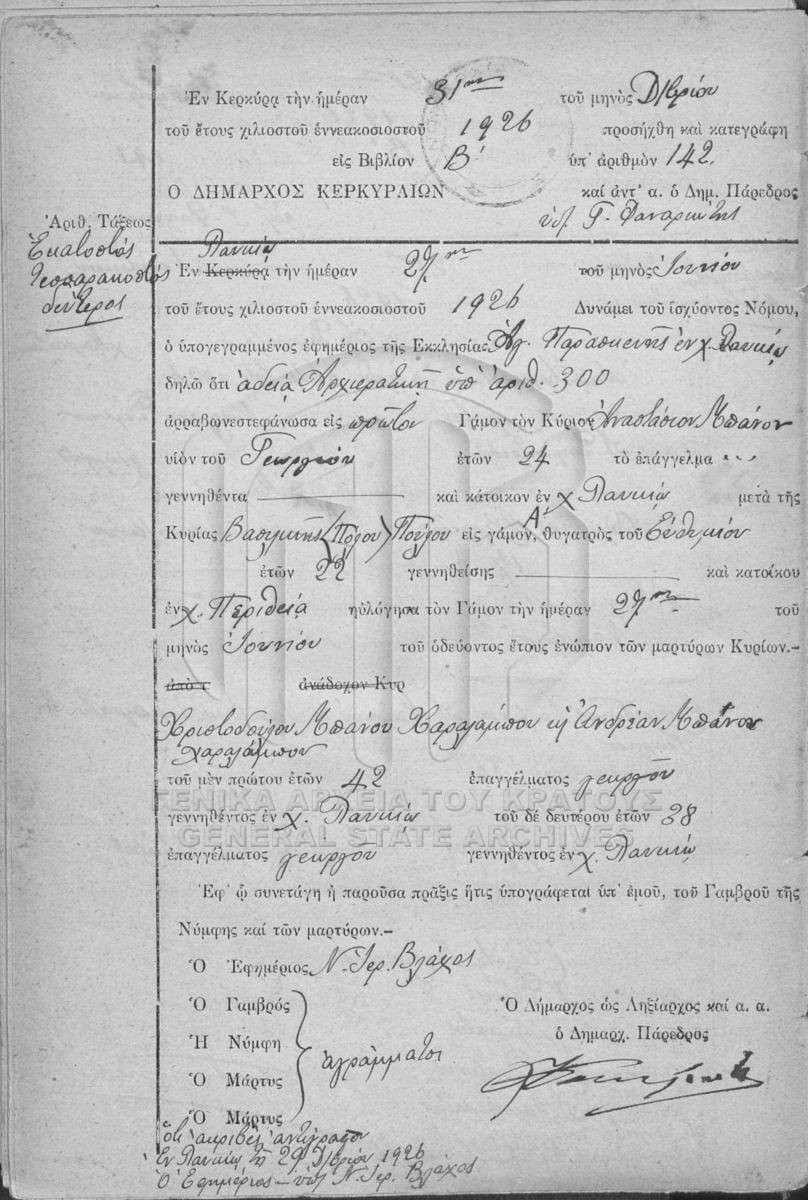 Ἐν Κερκύρᾳ τὴν ἡμέραν 31ην τοῦ μηνὸς Δ/βρίου
τοῦ ἔτους χιλιοστοῦ ἐννεακοσιοστοῦ 1926 προσήχθη καὶ κατεγράφη
εἰς Βιβλίον Β' ὑπ' ἀριθμὸν 142.
Ο ΔΗΜΑΡΧΟΣ ΚΕΡΚΥΡΑΙΩΝ καί ἀντ' α. ὁ Δημ. Πάρεδρος
Γ. Φαναριώτης
Ἀριθ. Τάξεως
Ἑκατοστὸς
τεσσαρακοστὸς
δεύτερος
Λαυκίῳ
Ἐν Κερκύρᾳ τὴν ἡμέραν 27ην τοῦ μηνὸς Ἰουνίου
τοῦ ἔτους χιλιοστοῦ ἐννεακοσιοστοῦ 1926 Δυνάμει τοῦ ἰσχύοντος Νόμου,
ὁ ὑπογεγραμμένος ἐφημέριος τῆς Εκκλησίας Ἁγ. Παρασκευῆς ἐν χ. Λαυκίῳ
δηλῶ ὅτι ἀδείᾳ Ἀρχιερατικῇ ὑπ' ἀριθ. 300
ἀρραβωνεστεφάνωσα εἰς πρῶτον Γάμον τὸν Κύριον Ἀναστάσιον Μπάνον
υἱὸν τοῦ Γεωργίου ἐτῶν 24 τὸ ἐπάγγελμα
γεννηθέντα καὶ κάτοικον ἐν χ Λαυκίῳ μετὰ τῆς
Κυρίας Βασιλικῆς (Πόλου) Πούλου εἰς γάμον, Α' θυγατρὸς τοῦ Εὐθυμίου
ἐτῶν 22 γεννηθείσης καὶ κατοίκου
ἐν χ. Περιθείᾳ ηὐλόγησα τὸν Γάμον τὴν ἡμέραν 27ην τοῦ
μηνὸς Ἰουνίου τοῦ ὁδεύοντος ἔτους ἐνώπιον τῶν μαρτύρων Κυρίων.–
ἀπὸ τ ἀνάδοχον Κυρ
Χριστοδούλου Μπάνου Χαραλάμπου κ Ἀνδρέαν Μπάνου
Χαραλάμπου
τοῦ μὲν πρώτου ἐτῶν 42 ἐπαγγέλματος γεωργοῦ
γεννηθέντος ἐν χ. Λαυκίῳ τοῦ δέ δευτέρου ἐτῶν 38
ΓΕΝΙΚΑ ΑΡΧΕΙΑ ΤΟΥ ΚΡΑΤΟΥΣ
GENERAL STATE ARCHIVES
ἐπαγγέλματος γεωργοῦ γεννηθέντος ἐν χ. Λαυκίῳ
Ἐφ' ᾧ συνετάγη ἡ παροῦσα πρᾶξις ἥτις ὑπογράφεται ὑπ' ἐμοῦ, τοῦ Γαμβροῦ τῆς
Νύμφης καί τῶν μαρτύρων.–
Ὁ Ἐφημέριος Ν. Ἱερ. Βλάχος
Ὁ Γαμβρός
Ἡ Νύμφη
Ὁ Μάρτυς
Ὁ Μάρτυς
ἀγράμματοι
Ὁ Δήμαρχος ὡς Ληξίαρχος καί α. α.
ὁ Δημαρχ. Πάρεδρος
ὅτι ἀκριβὲς ἀντίγραφον
Ἐν Λαυκίῳ τῇ 29 Δ/βρίου 1926
Ὁ Ἐφημέριος – Ν. Ἱερ. Βλάχος